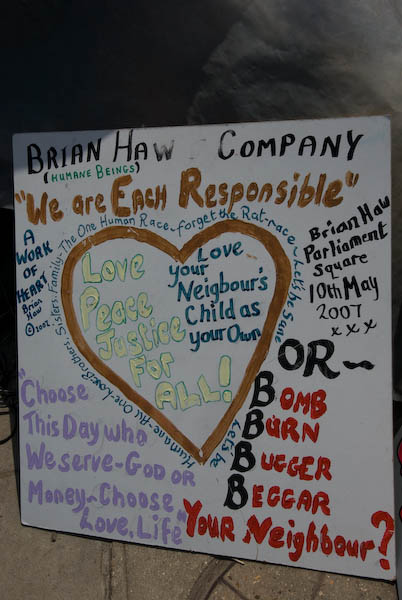 BRIAN HAW & COMPANY
(HUMANE BEINGS)
"WE ARE EACH RESPONSIBLE"
A
WORK
OF
HEART
Brian
Haw
©2002
Sisters, Family-The One Human Race-forget the Rat-race-Let's be Sane
Love
Peace
Justice
FOR
ALL!
Love
your
Neigbour's
Child as
your Own
Brian Haw
Parliament
Square
10th May
2007
x x x
Humane-All One-Love-Brothers,
Let's be
OR~
BOMB
BURN
BUGGER
BEGGAR
YOUR NEIGHBOUR?
"Choose
This Day who
We serve-GOD OR
Money-Choose
Love, Life"